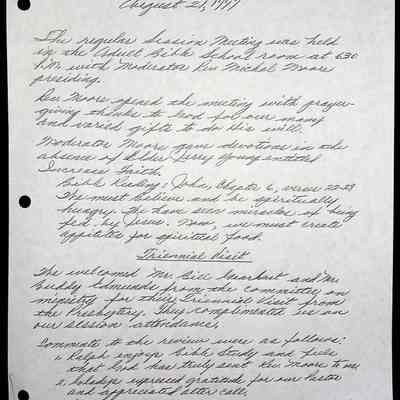 August 21, 1997
The regular Session Meeting was held
in the Adult Bible School room at 6:30
P.M. with Moderator Rev. Michal Moore
presiding.
Rev. Moore opened the meeting with prayer-
giving thanks to God for our many
and varied gifts to do His will.
Moderator Moore gave devotions in the
absence of Elder Jerry Young entitled
Increase Faith.
Bible Reading: John, Chapter 6, verses
The must believe and be spiritually
hungry. The have seen miracles of being
fed by Jesus. Now, we must create
appetites for spiritual food.
Triennial Visit
The welcomed Mr. Bill and Mr.
Buddy Edmunds from the committee on
ministry for their Triennial Visit from
the Presbytery. They complimented us on
our session attendance.
Comments to the review were as follows:
1. Ralph enjoys Bible Study and feels
that God has truly sent Rev. Moore to us.
2. expressed gratitude for our Pastor
and appreciated after call.